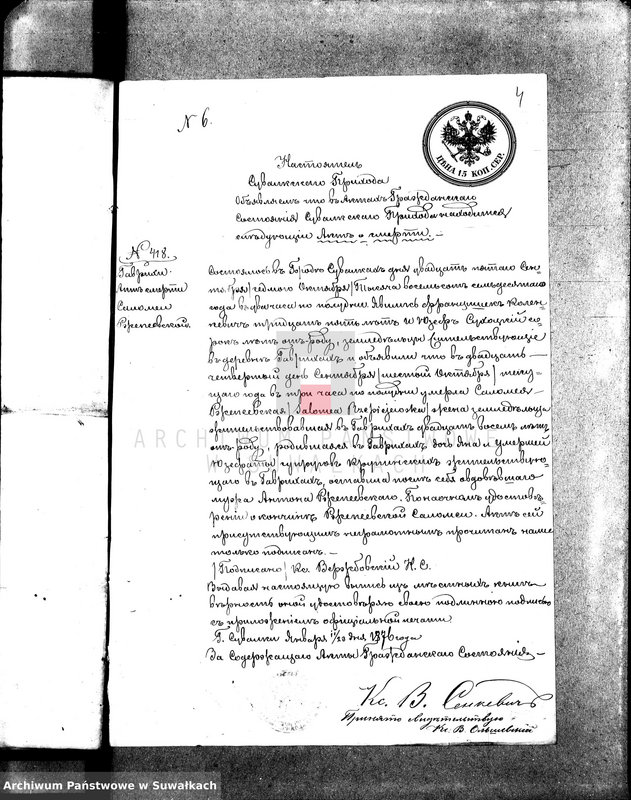 N 6.
4
ЦѢНА 15 КОП. СЕР.
Настоятель
Сувалкскаго Прихода
Объявляемъ что въ Актахъ Гражданскаго
Состоянія Сувалкскаго Прихода находится
слѣдующій Актъ о смерти. –
№ 418.
Гаврихи.
Актъ смерти
Саломеи
Состоялось въ Городѣ Сувалкахъ дня двадцать пятаго Сен-
тября/седмого Октября/Тысяча восемьсотъ семьдесятаго
года въ два часа по полудни. Явились Францишекъ
тридцать пять лѣтъ и Юзефъ Сухоцкій со-
рокъ лѣтъ отъ роду, земледѣльцы жительствующіе
въ деревнѣ Гаврихахъ и объявили что въ двадцать
четвертый день Сентября/шестой Октября/теку-
щаго года въ три часа по полудни умерла Саломея
/Salomea жена земледѣльца
жительствовавшая въ Гаврихахъ двадцать восемь лѣтъ
отъ роду, родившаяся въ Гаврихахъ дочь Яна и умершей
супруговъ жительствую-
щаго въ Гаврихахъ, оставила послѣ себя овдовѣвшаго
мужа Антона По наочномъ удостовѣ-
реніи о кончинѣ Саломеи. Актъ сей
присутствующимъ неграмотнымъ прочитанъ нами
только подписанъ. –
/Подписано/ Кс. Вержбовскій Н. С.
Выдавая настоящую выпись изъ мѣстныхъ книгъ
вѣрность оной удостовѣряю своею подлинною подписью
съ приложеніемъ официальной печати
Г. Сувалки Января дня 1876 года
За Содержащаго Акты Гражданскаго Состоянія –
Кс. В. Сенкевичъ
Принято
Кс. В. Ольшевскій
ARCHIWUM PAŃSTWOWE
W SUWAŁKACH
Archiwum Państwowe w Suwałkach